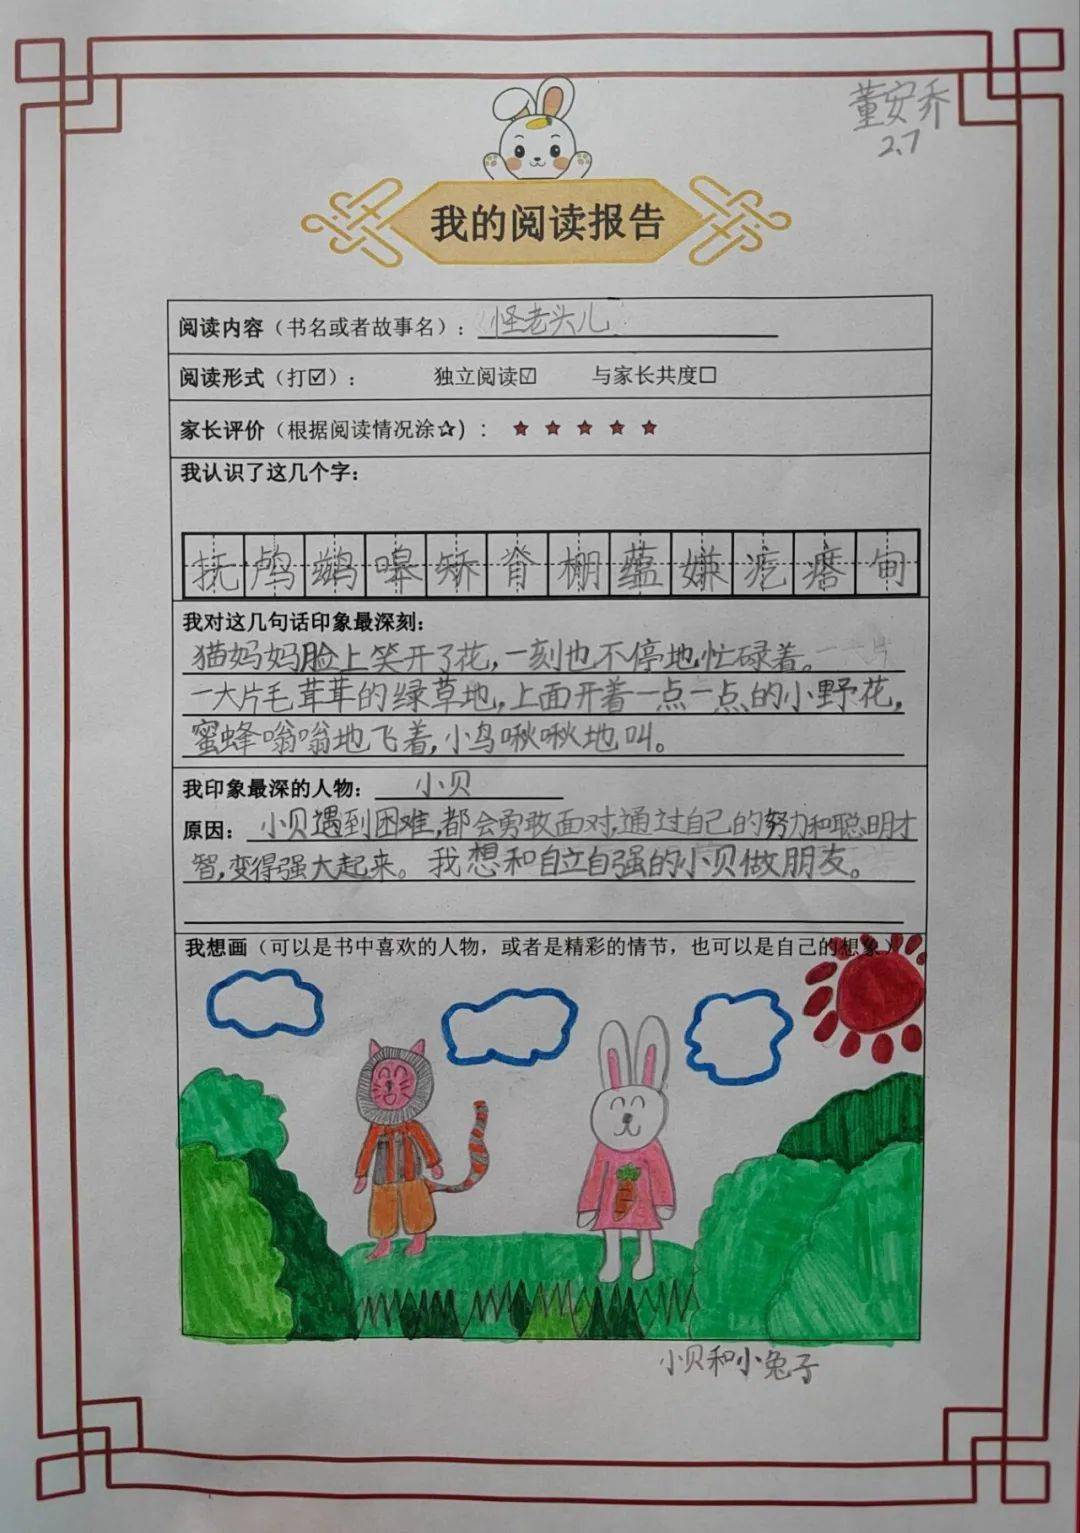 董安乔
2.7
我的阅读报告
阅读内容（书名或者故事名）：《怪老头儿》
阅读形式（打☑）： 独立阅读☑ 与家长共度□
家长评价（根据阅读情况涂☆）：★ ★ ★ ★ ★
我认识了这几个字：
抚 鸬 鹚 嗥 矫 脊 棚 蕴 嫌 疙 瘩 甸
我对这几句话印象最深刻：
猫妈妈脸上笑开了花，一刻也不停地忙碌着。
一大片毛茸茸的绿草地，上面开着一点一点的小野花，
蜜蜂嗡嗡地飞着，小鸟啾啾地叫。
我印象最深的人物： 小贝
原因：小贝遇到困难，都会勇敢面对，通过自己的努力和聪明才
智，变得强大起来。我想和自立自强的小贝做朋友。
我想画（可以是书中喜欢的人物，或者是精彩的情节，也可以是自己的想象）
小贝和小兔子